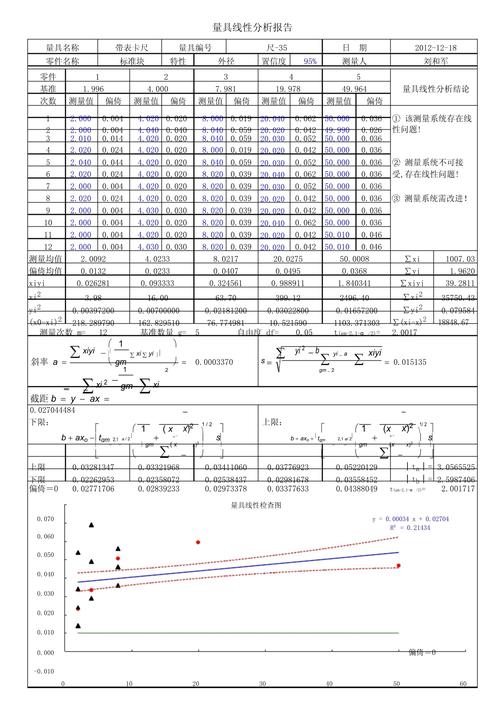 量具线性分析报告
量具名称 带表卡尺 量具编号 尺-35 日 期 2012-12-18
零件名称 标准块 特性 外径 置信度 95% 测量人 刘和军
零件 1 2 3 4 5
基准 1.996 4.000 7.981 19.978 49.964 量具线性分析结论
次数 测量值 偏倚 测量值 偏倚 测量值 偏倚 测量值 偏倚 测量值 偏倚
1 2.000 0.004 4.020 0.020 8.000 0.019 20.040 0.062 50.000 0.036 ① 该测量系统存在线
2 2.000 0.004 4.040 0.040 8.040 0.059 20.020 0.042 49.990 0.026 性问题!
3 2.010 0.014 4.020 0.020 8.040 0.059 20.030 0.052 50.000 0.036
4 2.020 0.024 4.020 0.020 8.020 0.039 20.020 0.042 50.000 0.036
5 2.040 0.044 4.020 0.020 8.040 0.059 20.030 0.052 50.000 0.036 ② 测量系统不可接
6 2.020 0.024 4.020 0.020 8.020 0.039 20.040 0.062 50.000 0.036 受,存在线性问题!
7 2.000 0.004 4.020 0.020 8.020 0.039 20.030 0.052 50.000 0.036
8 2.020 0.024 4.020 0.020 8.020 0.039 20.020 0.042 50.000 0.036 ③ 测量系统需改进!
9 2.000 0.004 4.030 0.030 8.020 0.039 20.020 0.042 50.000 0.036
10 2.000 0.004 4.020 0.020 8.020 0.039 20.040 0.062 50.000 0.036
11 2.000 0.004 4.020 0.020 8.020 0.039 20.020 0.042 50.010 0.046
12 2.000 0.004 4.030 0.030 8.020 0.039 20.020 0.042 50.010 0.046
测量均值 2.0092 4.0233 8.0217 20.0275 50.0008 Σxi 1007.03
偏倚均值 0.0132 0.0233 0.0407 0.0495 0.0368 Σyi 1.9620
xiyi 0.026281 0.093333 0.324561 0.988911 1.840341 Σxiyi 39.2811
xi² 3.98 16.00 63.70 399.12 2496.40 Σxi² 35750.43
yi² 0.00397200 0.00700000 0.02181200 0.03022800 0.01657200 Σyi² 0.079584
(x0-xi)² 218.289790 162.829510 76.774981 10.521590 1103.371303 Σ(xi-x)² 18848.67
测量次数 m= 12 基准数量 g= 5 自由度 df= 0.05 2.0017
斜率 a = = 0.0003370 s = = 0.015135
截距 b = y − ax =
0.027044484
下限: 上限:
上限 0.03281347 0.03321968 0.03411060 0.03776923 0.05220129 |tₐ|= 3.0565525
下限 0.02262953 0.02358072 0.02538437 0.02981678 0.03558452 |t_b|= 2.5987406
偏倚=0 0.02771706 0.02839233 0.02973378 0.03377633 0.04388049 2.001717
量具线性检查图
y = 0.00034 x + 0.02704
R² = 0.21434
0.070
0.060
0.050
0.040
0.030
0.020
0.010
0.000
-0.010
偏倚=0
0 10 20 30 40 50 60